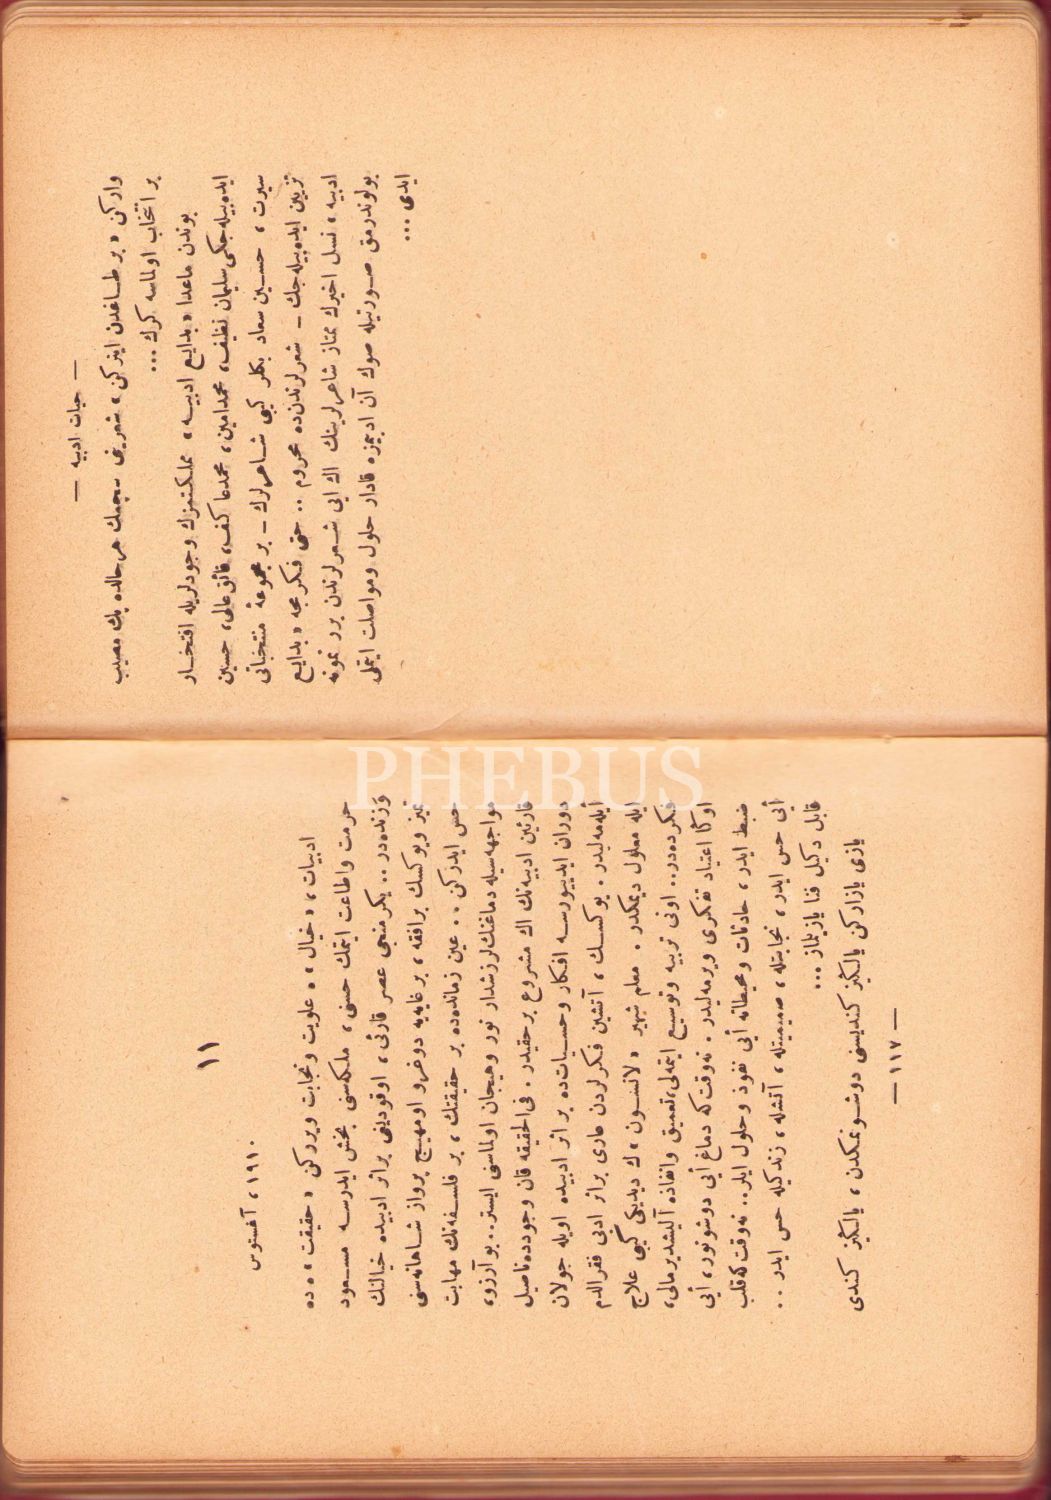 — حيات ادبيه —
واركن « بر طاغدن اينركن » شعرينى سچمك هر حالده پك مصيب
بر انتخاب اولماسه كرك ...
بوندن ماعدا « بدايع ادبيه » مملكتمزك وجودلريله افتخار
ايده بيله جكى سليمان نظيف، محمدامين، محمدعاكف، فائق عالى، حسين
سيرت ، حسين سعاد بكلر كبى شاعرلرك ـ بر مجموعهٔ منتخباتى
تزيين ايده بيله جك ـ شعرلرندن ده محروم .. حتى فكرمجه « بدايع
ادبيه » نسل اخيرك ممتاز شاعرلرينك اك ايى شعرلرندن برر نمونه
بولوندرمق صورتيله صوك آن ادبيمزه قادار حلول ومواصلت ايتملى
ايدى ...
PHEBUS
١١
١٩١٠ ، آغستوس
ادبيات ، « خيال » ه علويت ونجابت ويرركن « حقيقت » ه ده
حرمت واطاعت ايتمك حسنى ، ملكه سنى بخش ايدرسه مسعود
وزنده در .. يكرمنجى عصر قارئى ، اوقوديغى بر اثر ادبيده خيالك
تميز ويوكسك بر افقه ، بر غايه يه دوغرو اومهيج پرواز شاهانه سنى
حس ايدركن .. عين زمانده ده بر حقيقتك ، بر فلسفه نك مهابت
مواجهه سيله دماغنك لرزشدار نور وهيجان اولماسنى ايستر .. بو آرزو،
قارئين ادبيه نك اك مشروع بر حقيدر . فى الحقيقه قان وجودده ناصل
دوران ايدييورسه افكار وحسيات ده بر اثر ادبيده اويله جولان
ايله مه ليدر . يوكسك ، آتشين فكرلردن عارى بر اثر ادبى فقر الدم
ايله معلول ديمكدر . معلم شهير « لانسون » ك ديديكى كبى علاج
فكرده در .. اونى تربيه وتوسيع ايتمه لى، تعميق وانفاذه آليشديرمالى،
اوكا اعتياد تفكرى ويرمه ليدر . نه وقت كه دماغ أيى دوشونور ، أيى
ضبط ايدر ، حادثات ومحيطاته أيى نفوذ وحلول ايلر .. نه وقت كه قلب
أيى حس ايدر ، نجابتله ، صميميتله ، آتشله ، زندكيله حس ايدر ..
قابل دكيل فنا يازيلماز ...
يازى يازاركن يالكز كنديسنى دوشونمكدن ، يالكز كندى
— ١١٧ —